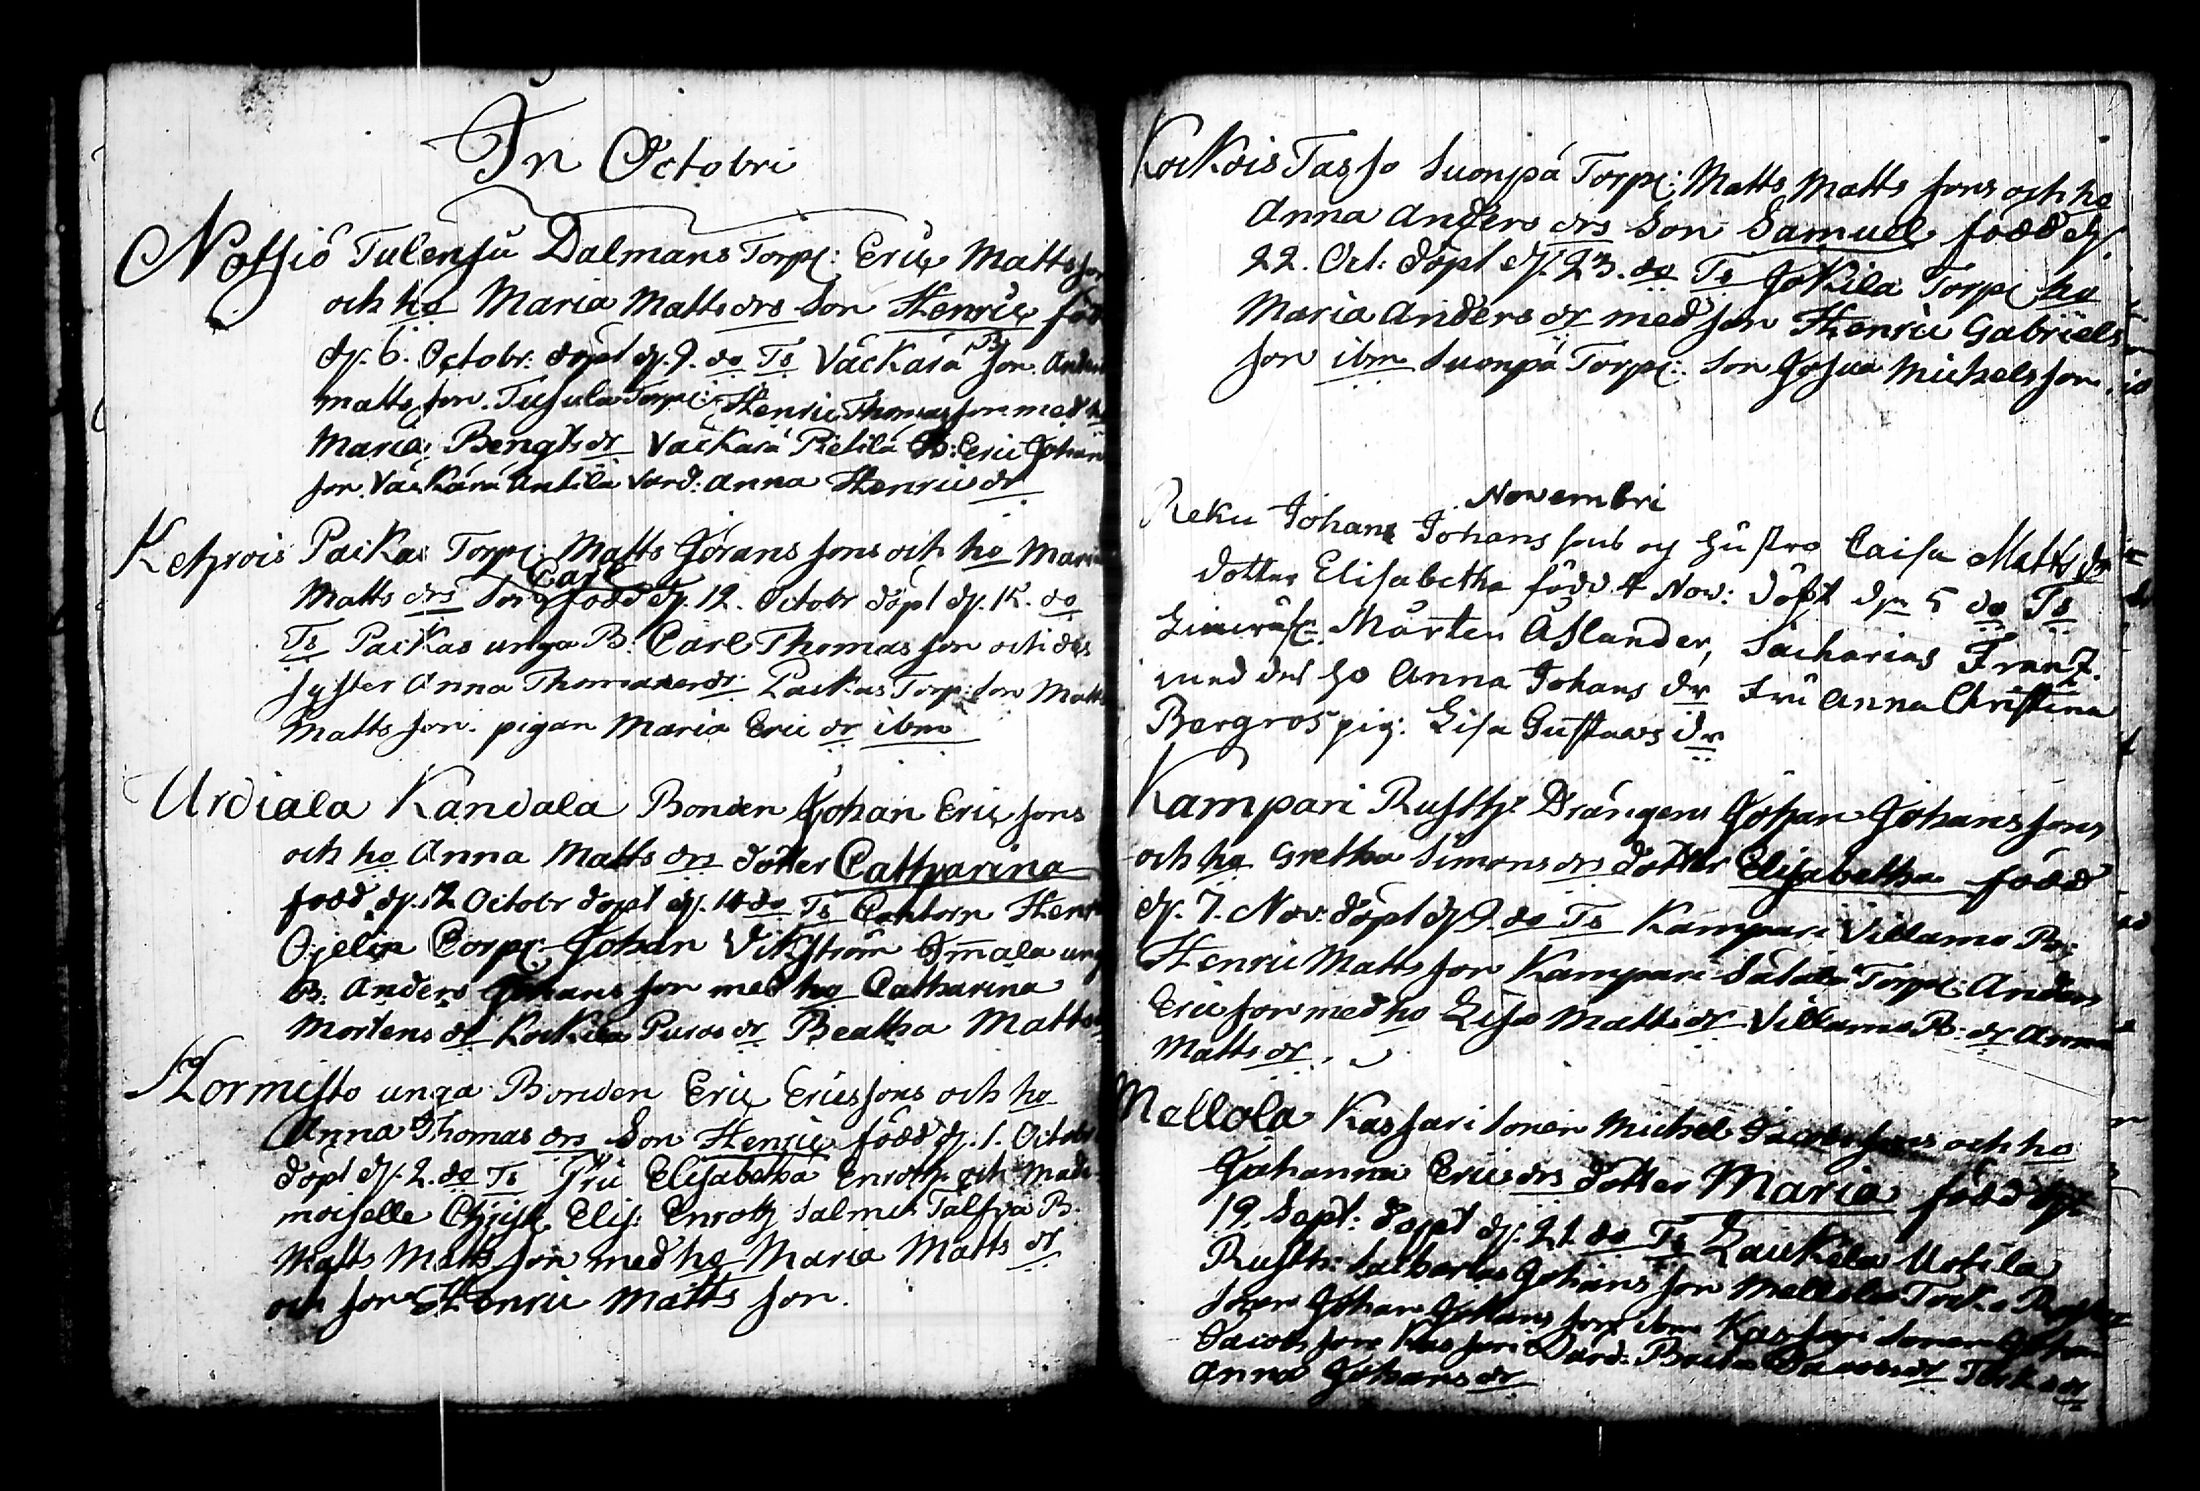 In Octobri
Notsiö Tulensu Dalmans Torp: Eric Matts son
och ho Maria Matts drs Son Henric föd
d. 6. Octobr. döpt d. 9. do Ts Väckärä B. son Anders
matts son. Tusula Torp: Henric Thomas son med ho
Maria Bengts dr Väckärä Pietilä B: Eric Johans
son. Väckärä Antila värd: Anna Henric dr
Kehrois Paikas Torp: Matts Görans sons och ho Maria
Matts drs Son Carl född d. 12. Octobr döpt d. 15. do
Ts Paikas unga B. Carl Thomas son och des
syster Anna Thomas dr Paikas Torp: son Matts
Matts son. pigan Maria Eric dr ibm
Urdiala Kandala Bonden Johan Eric sons
och ho Anna Matts drs dotter Catharina
född d. 12 Octobr döpt d. 14 do Ts Cantorn Henric
Ojelin Corp: Johan Vikström unga
B: Anders Johans son med ho Catharina
Mortens dr Kockila Puras dr Beatha Matts dr
Hormisto unga Bonden Eric Erics sons och ho
Anna Thomas drs Son Henric född d. 1. Octobr
döpt d. 2. do Ts Fru Elisabetha Enroth och Made
moiselle Christ: Elis: Enroth Salmis B.
Matts Matts son med ho Maria Matts dr
och son Henric Matts son.
Kockois Tasso Suonpä Torp: Matts Matts sons och ho
Anna Anders drs Son Samuel född d.
22. Oct: döpt d. 23. do Ts Jokila Torp: ho
Maria Anders dr med son Henric Gabriels
son ibm Suonpä Torp: Son Josua Michels son.
Novembri
Reku Johans Johans sons og hustro Caisa Matts dr
dotter Elisabetha född 4 Nov: döpt dn 5 do Ts
Mårten Åslander, Sacharias Frantz
med des ho Anna Johans dr Fru Anna Christina
Bergros pig: Lisa Gustavs dr
Kampari Rusth: Drängens Johan Johans sons
och ho Gretha Simons drs dotter Elisabetha född
d. 7. Nov: döpt d. 9. do Ts Kampari Villamo B:
Henric Matts son Kampari Sätälä Torp: Anders
Eric son med ho Lisa Matts dr Villamo B: dr Anna
Matts dr.
Mellola Kassari sonen Michel Jacobs sons och ho
Johanna Erics drs dotter Maria född d.
19. Sept: döpt d. 21. do Ts Laukela Uotila
Rusth: Sacharias Johans son Mellola Torke Rusth:
sonen Johan Johans son ibm Kassari sonen Johan
Jacobs son Kassari Värd: Brita Jacobs dr Torke dr
Anna Johans dr